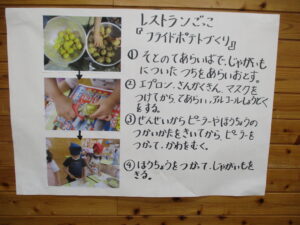 レストランごっこ
『フライドポテトづくり』
① そとのてあらいばで、じゃがいも
についた つちをあらいおとす。
② エプロン、さんかくきん、マスクを
つけてから、てあらい、アルコールしょうどく
をする。
③ せんせいからピーラーやほうちょうの
つかいかたをきいてから、ピーラーを
つかって、かわをむく。
④ ほうちょうをつかって、じゃがいもを
きる。